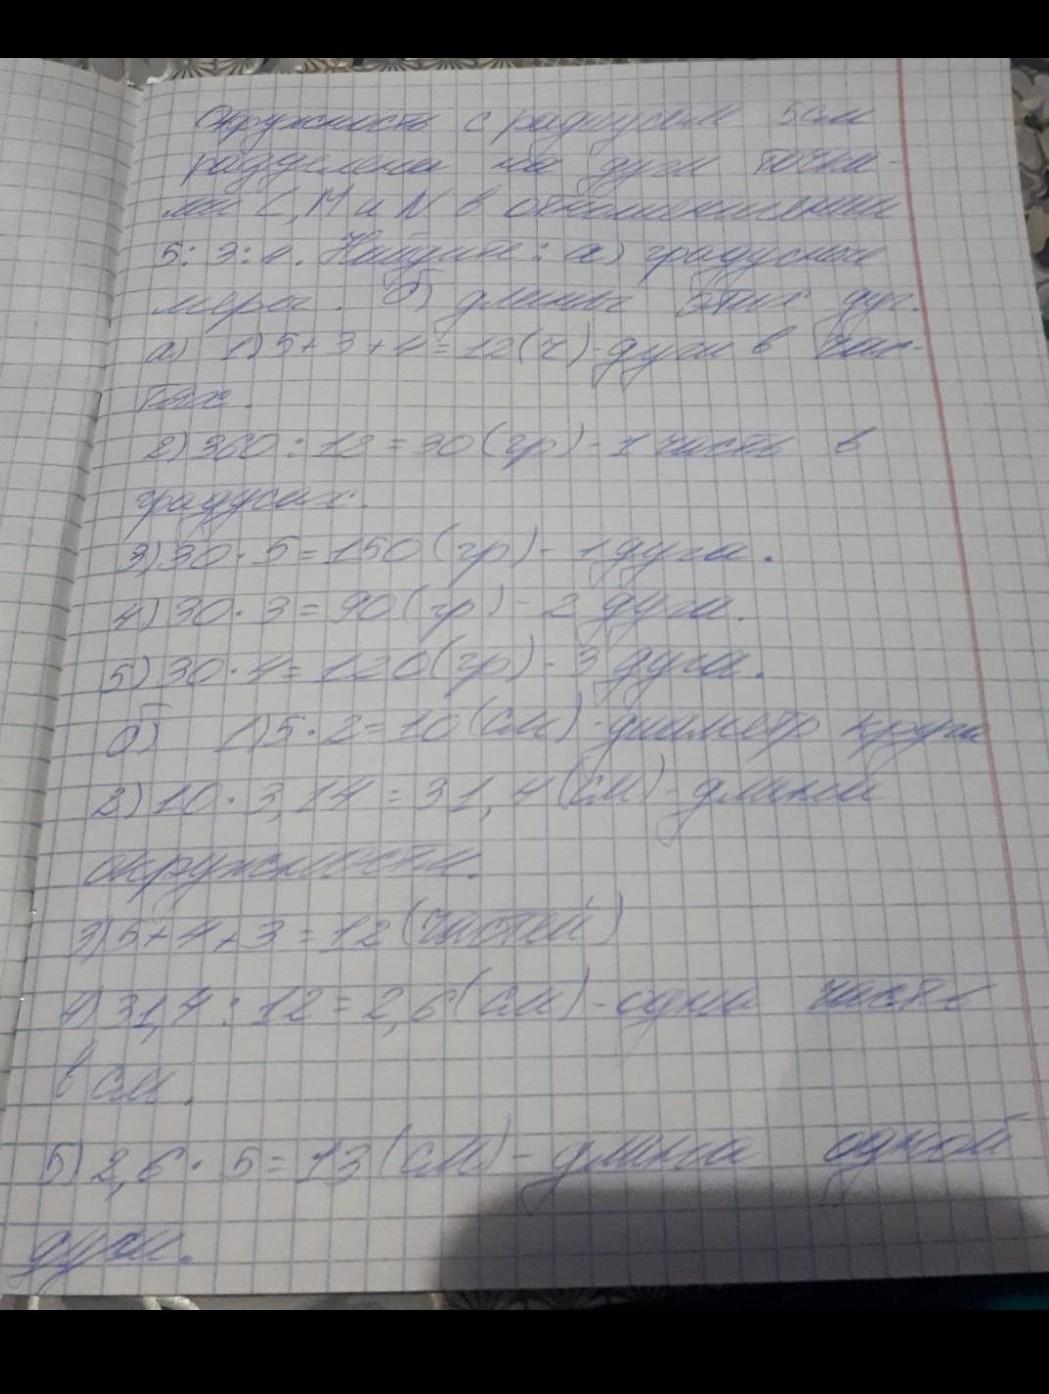 Окружность с радиусом 5см
разделена на дуги точка-
ми L, M и N в отношении
5:3:4. Найдите: а) градусные
меры. б) длины этих дуг.
а) 1) 5+3+4=12(ч)-дуги в час-
тях.
2) 360:12=30(гр)-1 часть в
градусах.
3) 30·5=150(гр)-1 дуга.
4) 30·3=90(гр)-2 дуга.
5) 30·4=120(гр)-3 дуга.
б) 1) 5·2=10(см)-диаметр круга
2) 10·3,14=31,4(см)-длина
окружности.
3) 5+4+3=12(частей)
4) 31,4:12=2,6(см)-одна часть
в см.
5) 2,6·5=13(см)-длина одной
дуги.